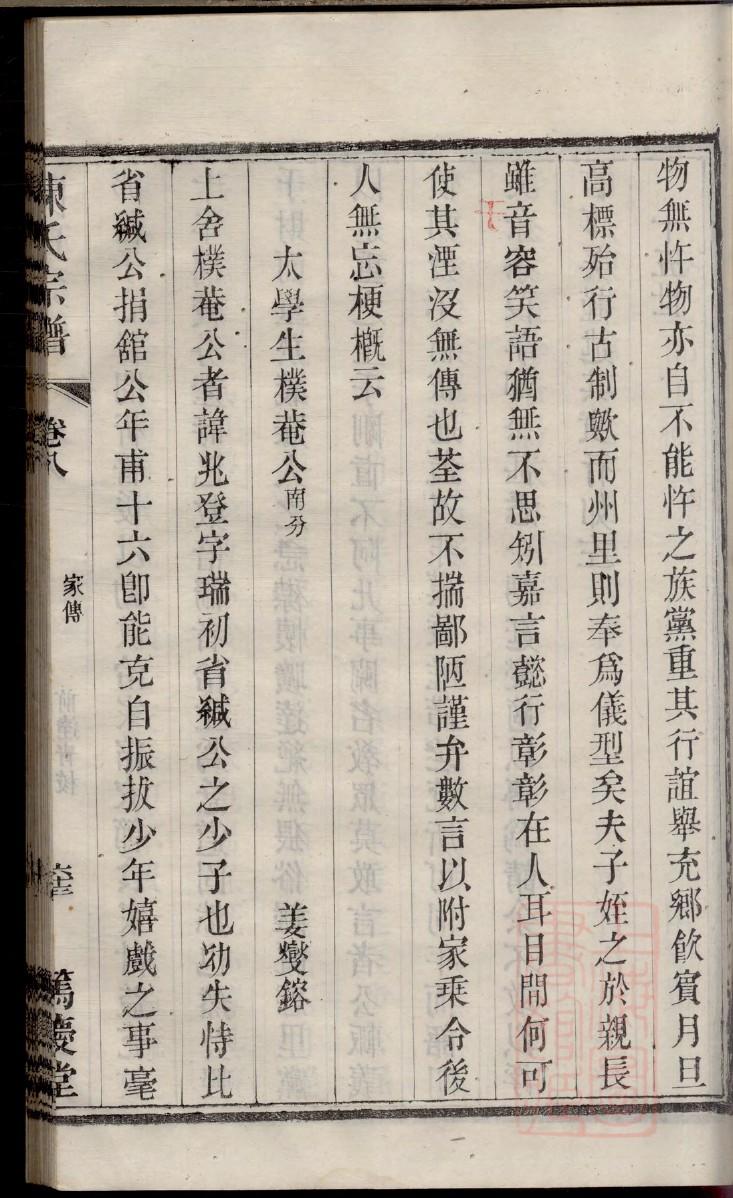 物無忤物亦自不能忤之族黨重其行誼舉充鄉飲賓月旦
高標殆行古制歟而州里則奉爲儀型矣夫子姪之於親長
雖音容笑語猶無不思矧嘉言懿行彰彰在人耳目間何可
使其湮沒無傳也荃故不揣鄙陋謹弁數言以附家乘令後
人無忘梗概云
太學生樸菴公南分 姜燮鎔
上舍樸菴公者諱兆登字瑞初省緘公之少子也幼失恃比
省緘公捐舘公年甫十六卽能克自振拔少年嬉戲之事毫
陳氏宗譜 卷八 家傳 篤慶堂